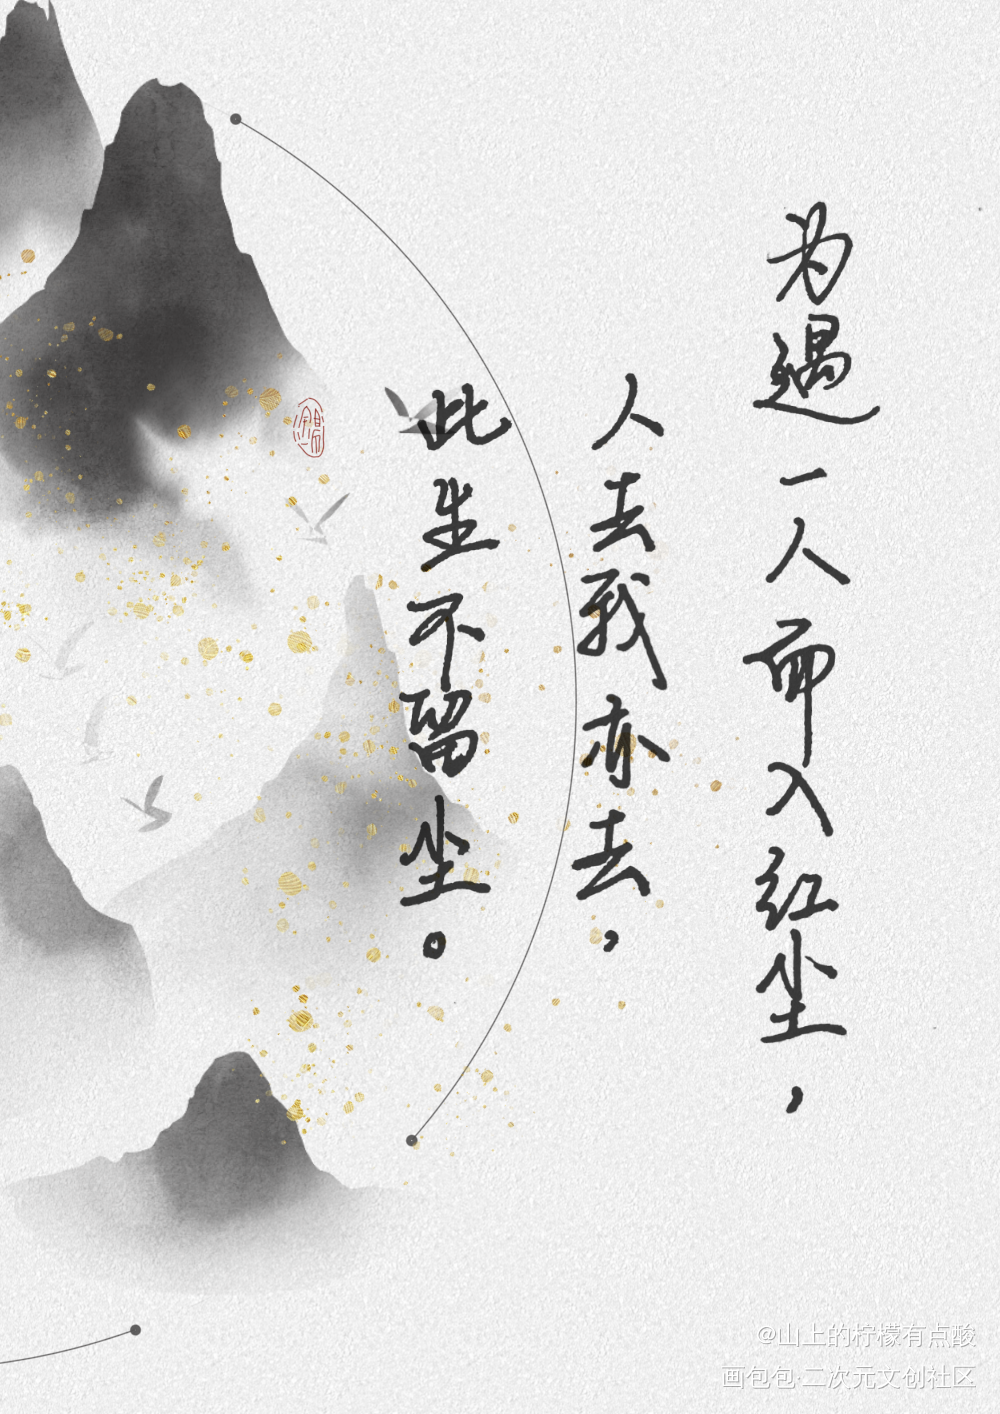 为遇一人而入红尘，
人去我亦去，
此生不留尘。
@山上的柠檬有点酸
画包包·二次元文创社区